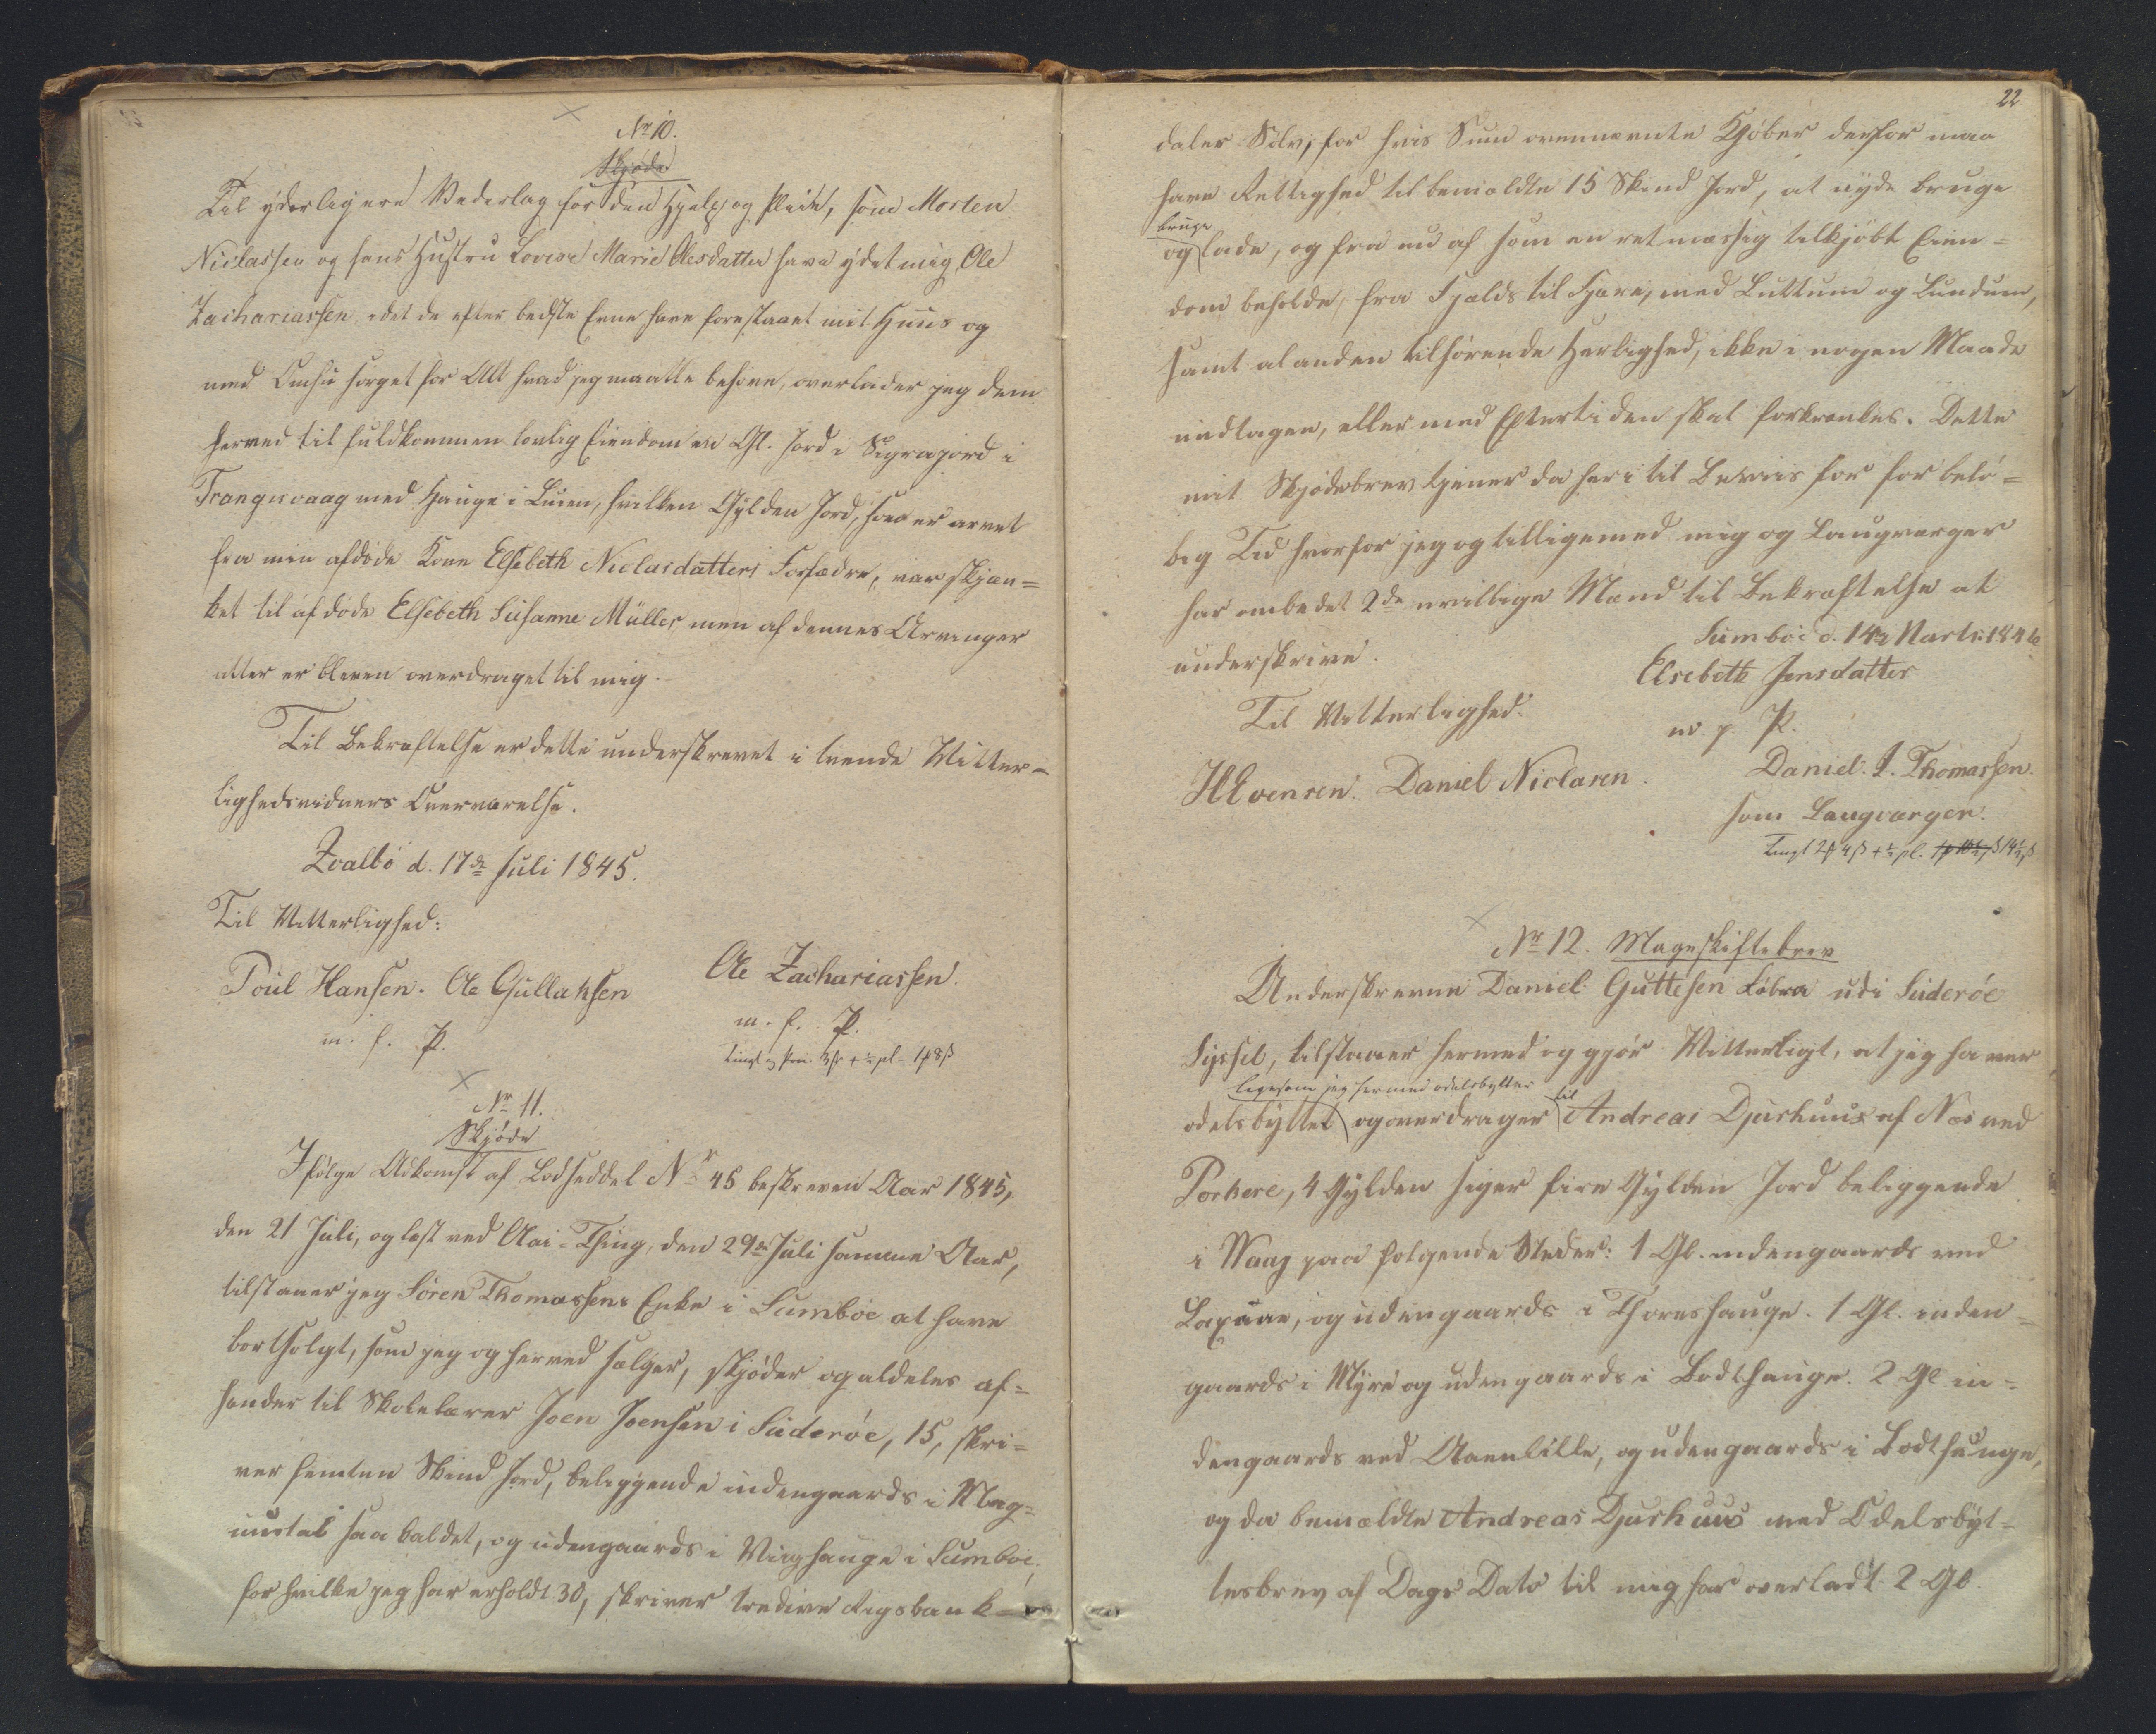 No 10.
Skjøde
Til yderligere Vederlag for den Hjelp og Pleie, som Morten
Niclassen og hans Hustru Lovise Marie Olesdatter have ydet mig, Ole
Zachariassen, idet de efter bedste Evne have forestaaet mit Huus og
med Omhu sørget for Alt hvad jeg maatte behøve, overlader jeg dem
herved til fuldkommen lovlig Eiendom en Gl. Jord i Sigrajord i
Trangisvaag med Hauge i Lien, hvilken Gylden Jord, som er arvet
fra min afdøde Kone Elsebeth Niclasdatters Forfædre, var skjæn=
ket til afdøde Elsebeth Susanne Müller, men af dennes Arvinger
atter er bleven overdraget til mig.
Til Bekræftelse er dette underskrevet i tvende Vitter=
lighedsvidners Overværelse.
Zvalbø d. 17de Juli 1845.
Til Vitterlighed:
Poul Hansen. Ole Gullaksen
m. f. P.
Ole Zachariassen.
m. f. P.
No 11.
Skjøde
Ifølge Adkomst af Lodseddel No 45 beskreven Aar 1845,
den 21 Juli, og læst ved Aai-Thing, den 29de Juli samme Aar,
tilstaaer jeg Søren Thomassens Enke i Sumbøe at have
bortsolgt, som jeg og herved sælger, skjøder og aldeles af=
hænder til Skolelærer Joen Joensen i Suderøe, 15, skri=
ver femten Skind Jord, beliggende indengaards i Mag=
nustal saa kaldet, og udengaards i Viighauge i Sumbøe,
for hvilke jeg har erholdt 30, skriver tredive Rigsbank=
22
daler Sølv, for hvis Sum ovennævnte Kjøber derfor maa
have Rettighed til bemældte 15 Skind Jord, at nyde bruge
bruge
og lade, og fra nu af som en retmæssig tilkjøbt Eien=
dom beholde, fra Fjelds til Fjære, med Luttum og Lundum,
samt al anden tilhørende Herlighed, ikke i nogen Maade
undtagen, eller med Eftertiden skal forkrænkes. Dette
mit Skjødebrev tjener da heri til Beviis for forbelø=
big Tid hvorfor jeg og tilligemed mig og Laugværger
har ombedet 2de uvillige Mænd til Bekræftelse at
underskrive.
Sumbøe d. 14de Marts 1846
Elsebeth Jensdatter
m. f. P.
Til Vitterlighed:
Daniel Niclasen.
Daniel J. Thomassen.
som Laugværger.
No 12. Mageskiftebrev
Underskrevne Daniel Guttesen Løbra udi Suderøe
Syssel, tilstaaer hermed og gjør Vitterligt, at jeg haver
ligesom jeg hermed odelsbytter
til
odelsbyttet og overdrager Andreas Djurhuus af Næs ved
Porkere, 4 Gylden siger fire Gylden Jord beliggende
i Waag paa følgende Steder: 1 Gl. indengaards ved
Laxaae, og udengaards i Thoreshauge. 1 Gl. inden=
gaards i Myre og udengaards i Bodthauge. 2 Gl in=
dengaards ved Aaenlille, og udengaards i Bodthauge,
og da bemældte Andreas Djurhuus med Odelsbyt=
tesbrev af Dags Dato til mig har overladt 2 Gl.